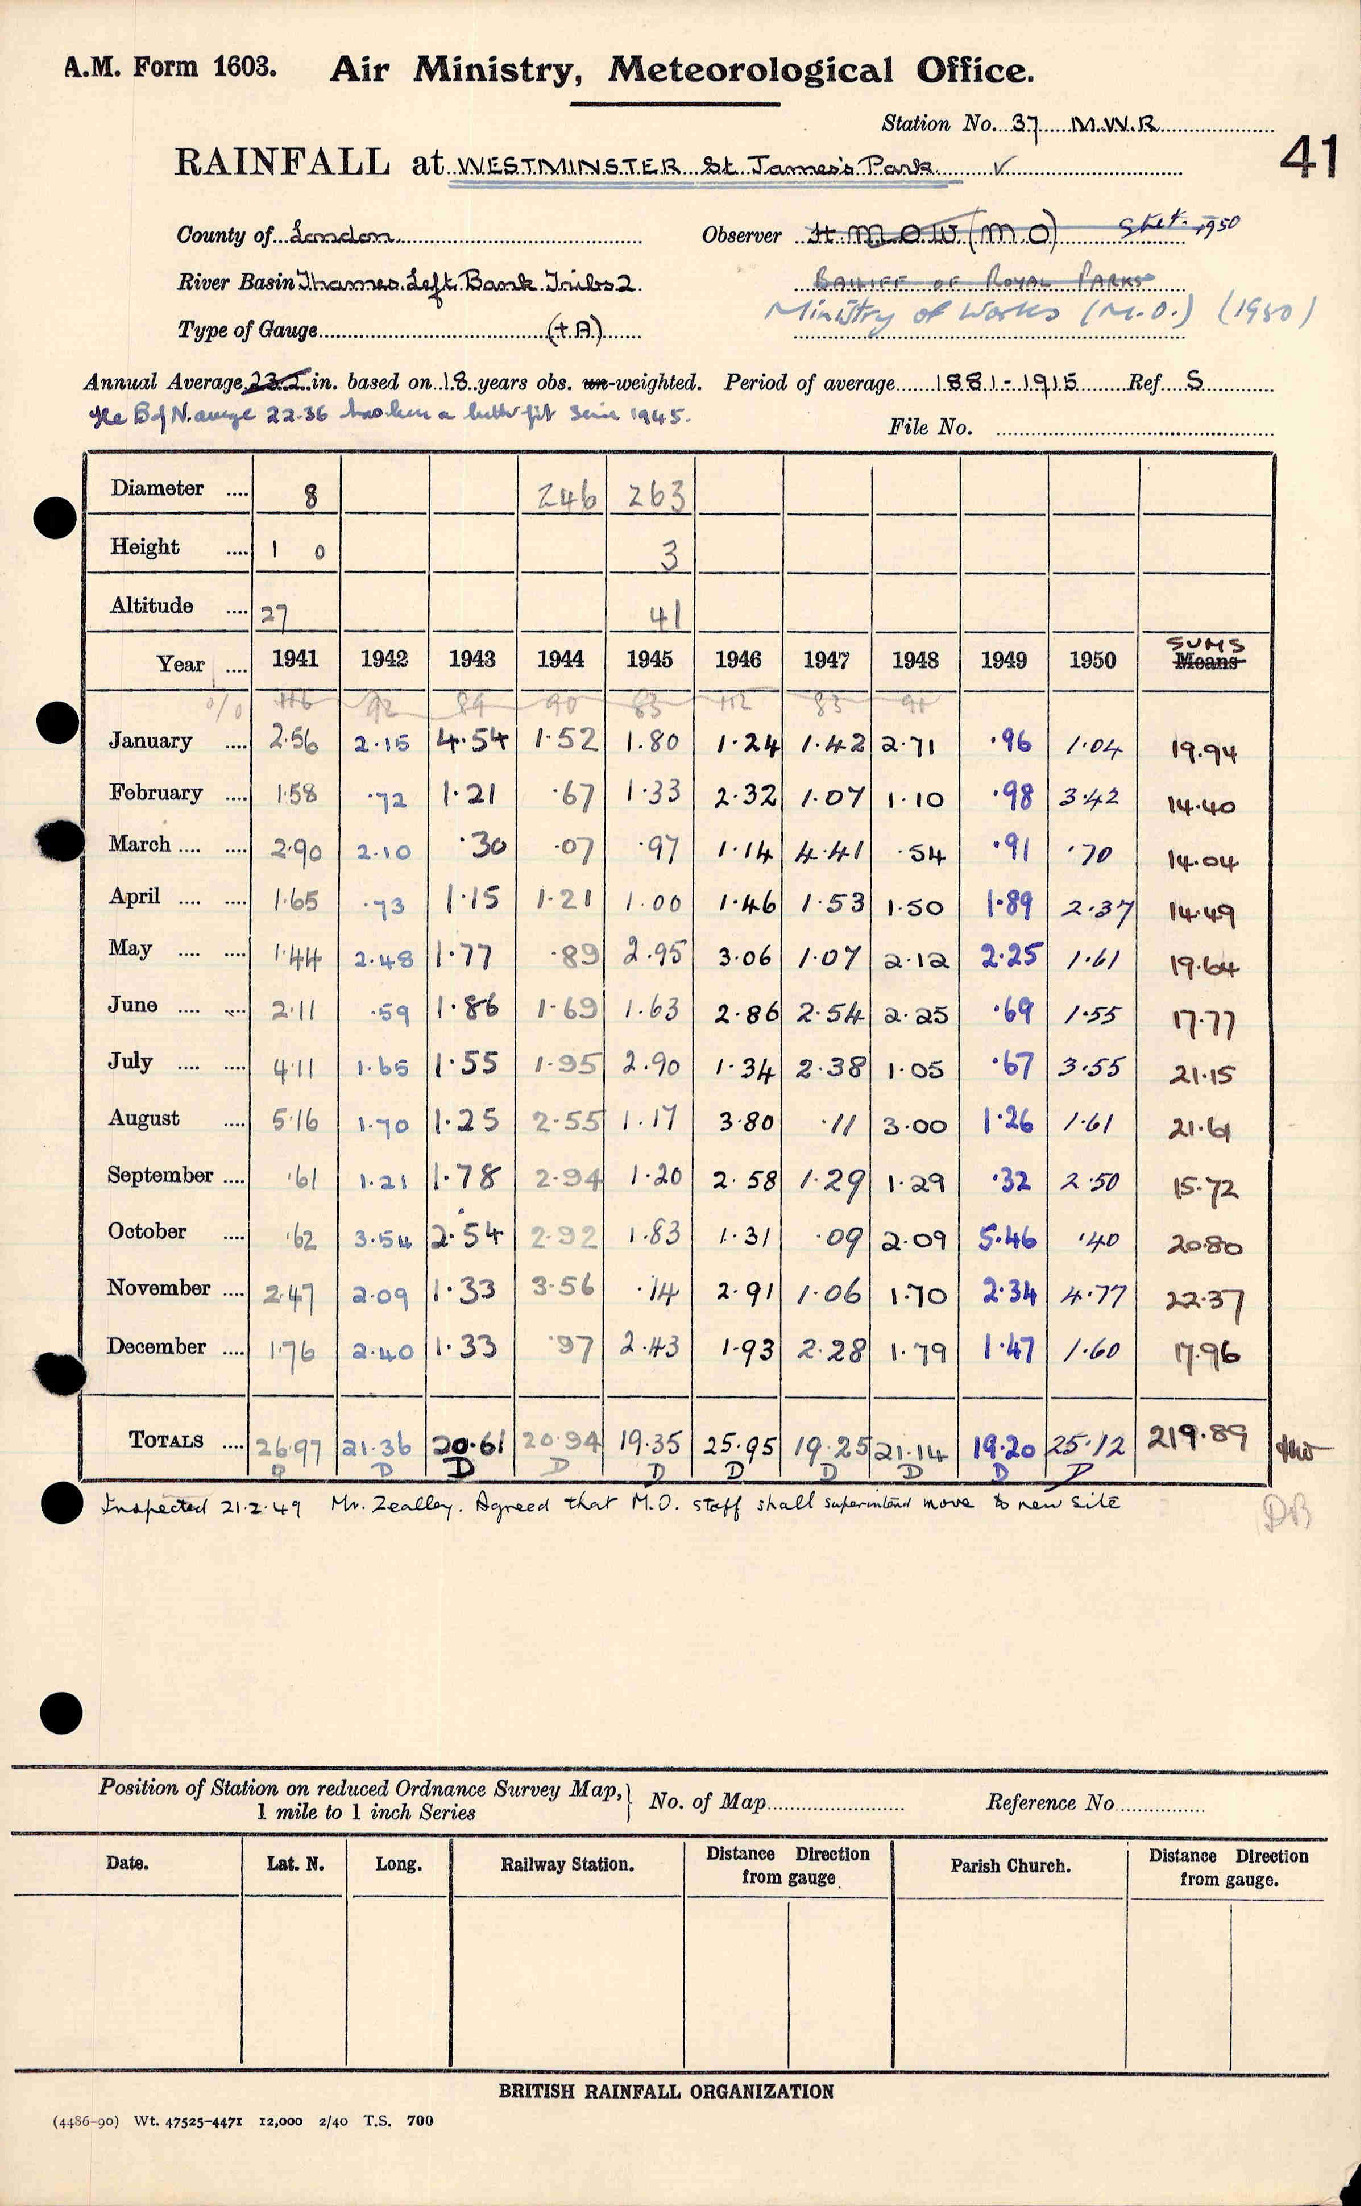 A.M. Form 1603. Air Ministry, Meteorological Office.
Station No. 37 M.W.R
41
RAINFALL at WESTMINSTER St James's Park ✓
County of London
Observer H.M.O.W (M.O) Stet. 1950
River Basin Thames Left Bank Tribs 2
BAILIFF OF ROYAL PARKS
Ministry of Works (M.O.) (1950)
Type of Gauge (+A)
Annual Average 23.2 in. based on 18 years obs. un-weighted. Period of average 1881-1915 Ref S
The B of N. avge 22.36 has been a better fit since 1945.
File No.
Diameter .... 8 246 263
Height .... 1 0 3
Altitude .... 27 41
Year .... 1941 1942 1943 1944 1945 1946 1947 1948 1949 1950 SUMS Means
% 116 92 89 90 83 112 83 91
January .... 2.56 2.15 4.54 1.52 1.80 1.24 1.42 2.71 .96 1.04 19.94
February .... 1.58 .72 1.21 .67 1.33 2.32 1.07 1.10 .98 3.42 14.40
March .... .... 2.90 2.10 .30 .07 .97 1.14 4.41 .54 .91 .70 14.04
April .... .... 1.65 .73 1.15 1.21 1.00 1.46 1.53 1.50 1.89 2.37 14.49
May .... .... 1.44 2.48 1.77 .89 2.95 3.06 1.07 2.12 2.25 1.61 19.64
June .... .... 2.11 .59 1.86 1.69 1.63 2.86 2.54 2.25 .69 1.55 17.77
July .... .... 4.11 1.65 1.55 1.95 2.90 1.34 2.38 1.05 .67 3.55 21.15
August .... 5.16 1.70 1.25 2.55 1.17 3.80 .11 3.00 1.26 1.61 21.61
September .... .61 1.21 1.78 2.94 1.20 2.58 1.29 1.29 .32 2.50 15.72
October .... .62 3.54 2.54 2.92 1.83 1.31 .09 2.09 5.46 .40 20.80
November .... 2.47 2.09 1.33 3.56 .14 2.91 1.06 1.70 2.34 4.77 22.37
December .... 1.76 2.40 1.33 .97 2.43 1.93 2.28 1.79 1.47 1.60 17.96
TOTALS .... 26.97 21.36 20.61 20.94 19.35 25.95 19.25 21.14 19.20 25.12 219.89
D D D D D D D D D D
Inspected 21.2.49 Mr. Zealley. Agreed that M.O. staff shall superintend move to new site
DB
Position of Station on reduced Ordnance Survey Map,
1 mile to 1 inch Series
No. of Map
Reference No
Date. Lat. N. Long. Railway Station. Distance Direction from gauge Parish Church. Distance Direction from gauge.
BRITISH RAINFALL ORGANIZATION
(4486-90) Wt. 47525-4471 12,000 2/40 T.S. 700